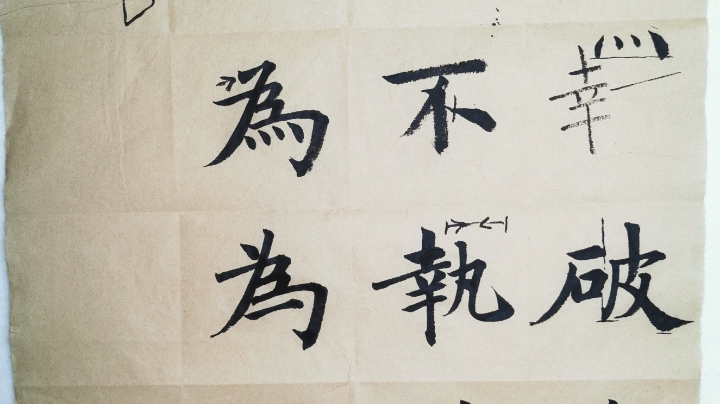 幸破
不執
為為